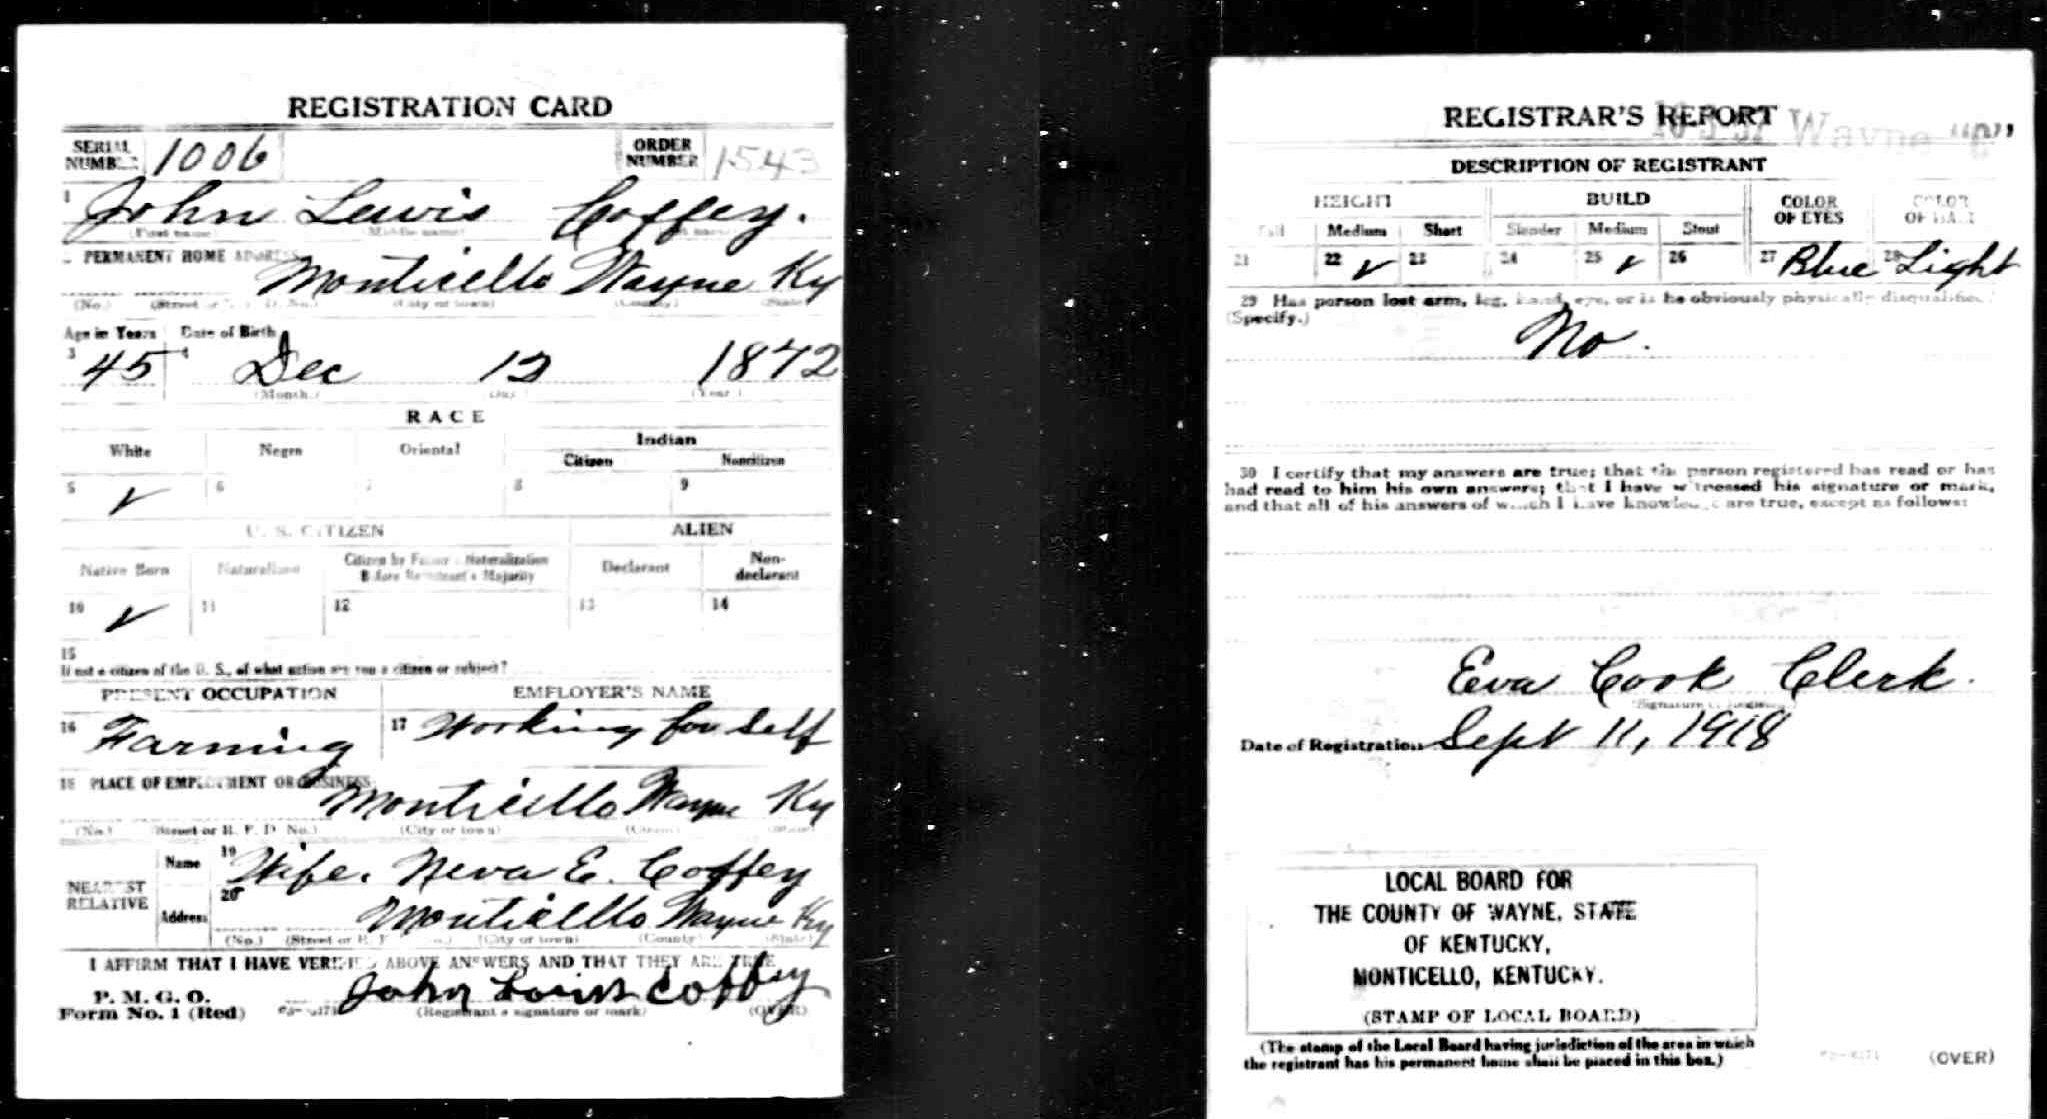 REGISTRATION CARD
SERIAL NUMBER 1006 ORDER NUMBER 1543
1 John Lewis Coffey.
(First name) (Middle name)
PERMANENT HOME ADDRESS
Monticello Wayne Ky
(No.) (Street or R. F. D. No.) (City or town) (County) (State)
Age in Years Date of Birth
3 45 4 Dec 12 1872
(Month.) (Day) (Year.)
RACE
White Negro Oriental Indian
Citizen Noncitizen
5 ✓ 6 7 8 9
U. S. CITIZEN ALIEN
Native Born Naturalized Citizen by Father's Naturalization Before Registrant's Majority Declarant Non-declarant
10 ✓ 11 12 13 14
15
If not a citizen of the U. S., of what nation are you a citizen or subject?
PRESENT OCCUPATION EMPLOYER'S NAME
16 Farming 17 Working for Self
18 PLACE OF EMPLOYMENT OR BUSINESS:
Monticello Wayne Ky
(No.) (Street or R. F. D. No.) (City or town) (County) (State)
NEAREST RELATIVE Name 19 Wife. Neva E. Coffey
Address 20 Monticello Wayne Ky
(No.) (Street or R. F. D. No.) (City or town) (County) (State)
I AFFIRM THAT I HAVE VERIFIED ABOVE ANSWERS AND THAT THEY ARE TRUE
P. M. G. O.
Form No. 1 (Red) John Louis Coffey
(Registrant's signature or mark) (OVER)
REGISTRAR'S REPORT
Wayne "C"
DESCRIPTION OF REGISTRANT
HEIGHT BUILD COLOR OF EYES COLOR OF HAIR
Tall Medium Short Slender Medium Stout
21 22 ✓ 23 24 25 ✓ 26 27 Blue 28 Light
29 Has person lost arm, leg, hand, eye, or is he obviously physically disqualified?
(Specify.)
No.
30 I certify that my answers are true; that the person registered has read or has
had read to him his own answers; that I have witnessed his signature or mark,
and that all of his answers of which I have knowledge are true, except as follows:
Eva Cook Clerk.
Date of Registration Sept 11, 1918
LOCAL BOARD FOR
THE COUNTY OF WAYNE, STATE
OF KENTUCKY,
MONTICELLO, KENTUCKY.
(STAMP OF LOCAL BOARD)
(The stamp of the Local Board having jurisdiction of the area in which
the registrant has his permanent home shall be placed in this box.)
(OVER)